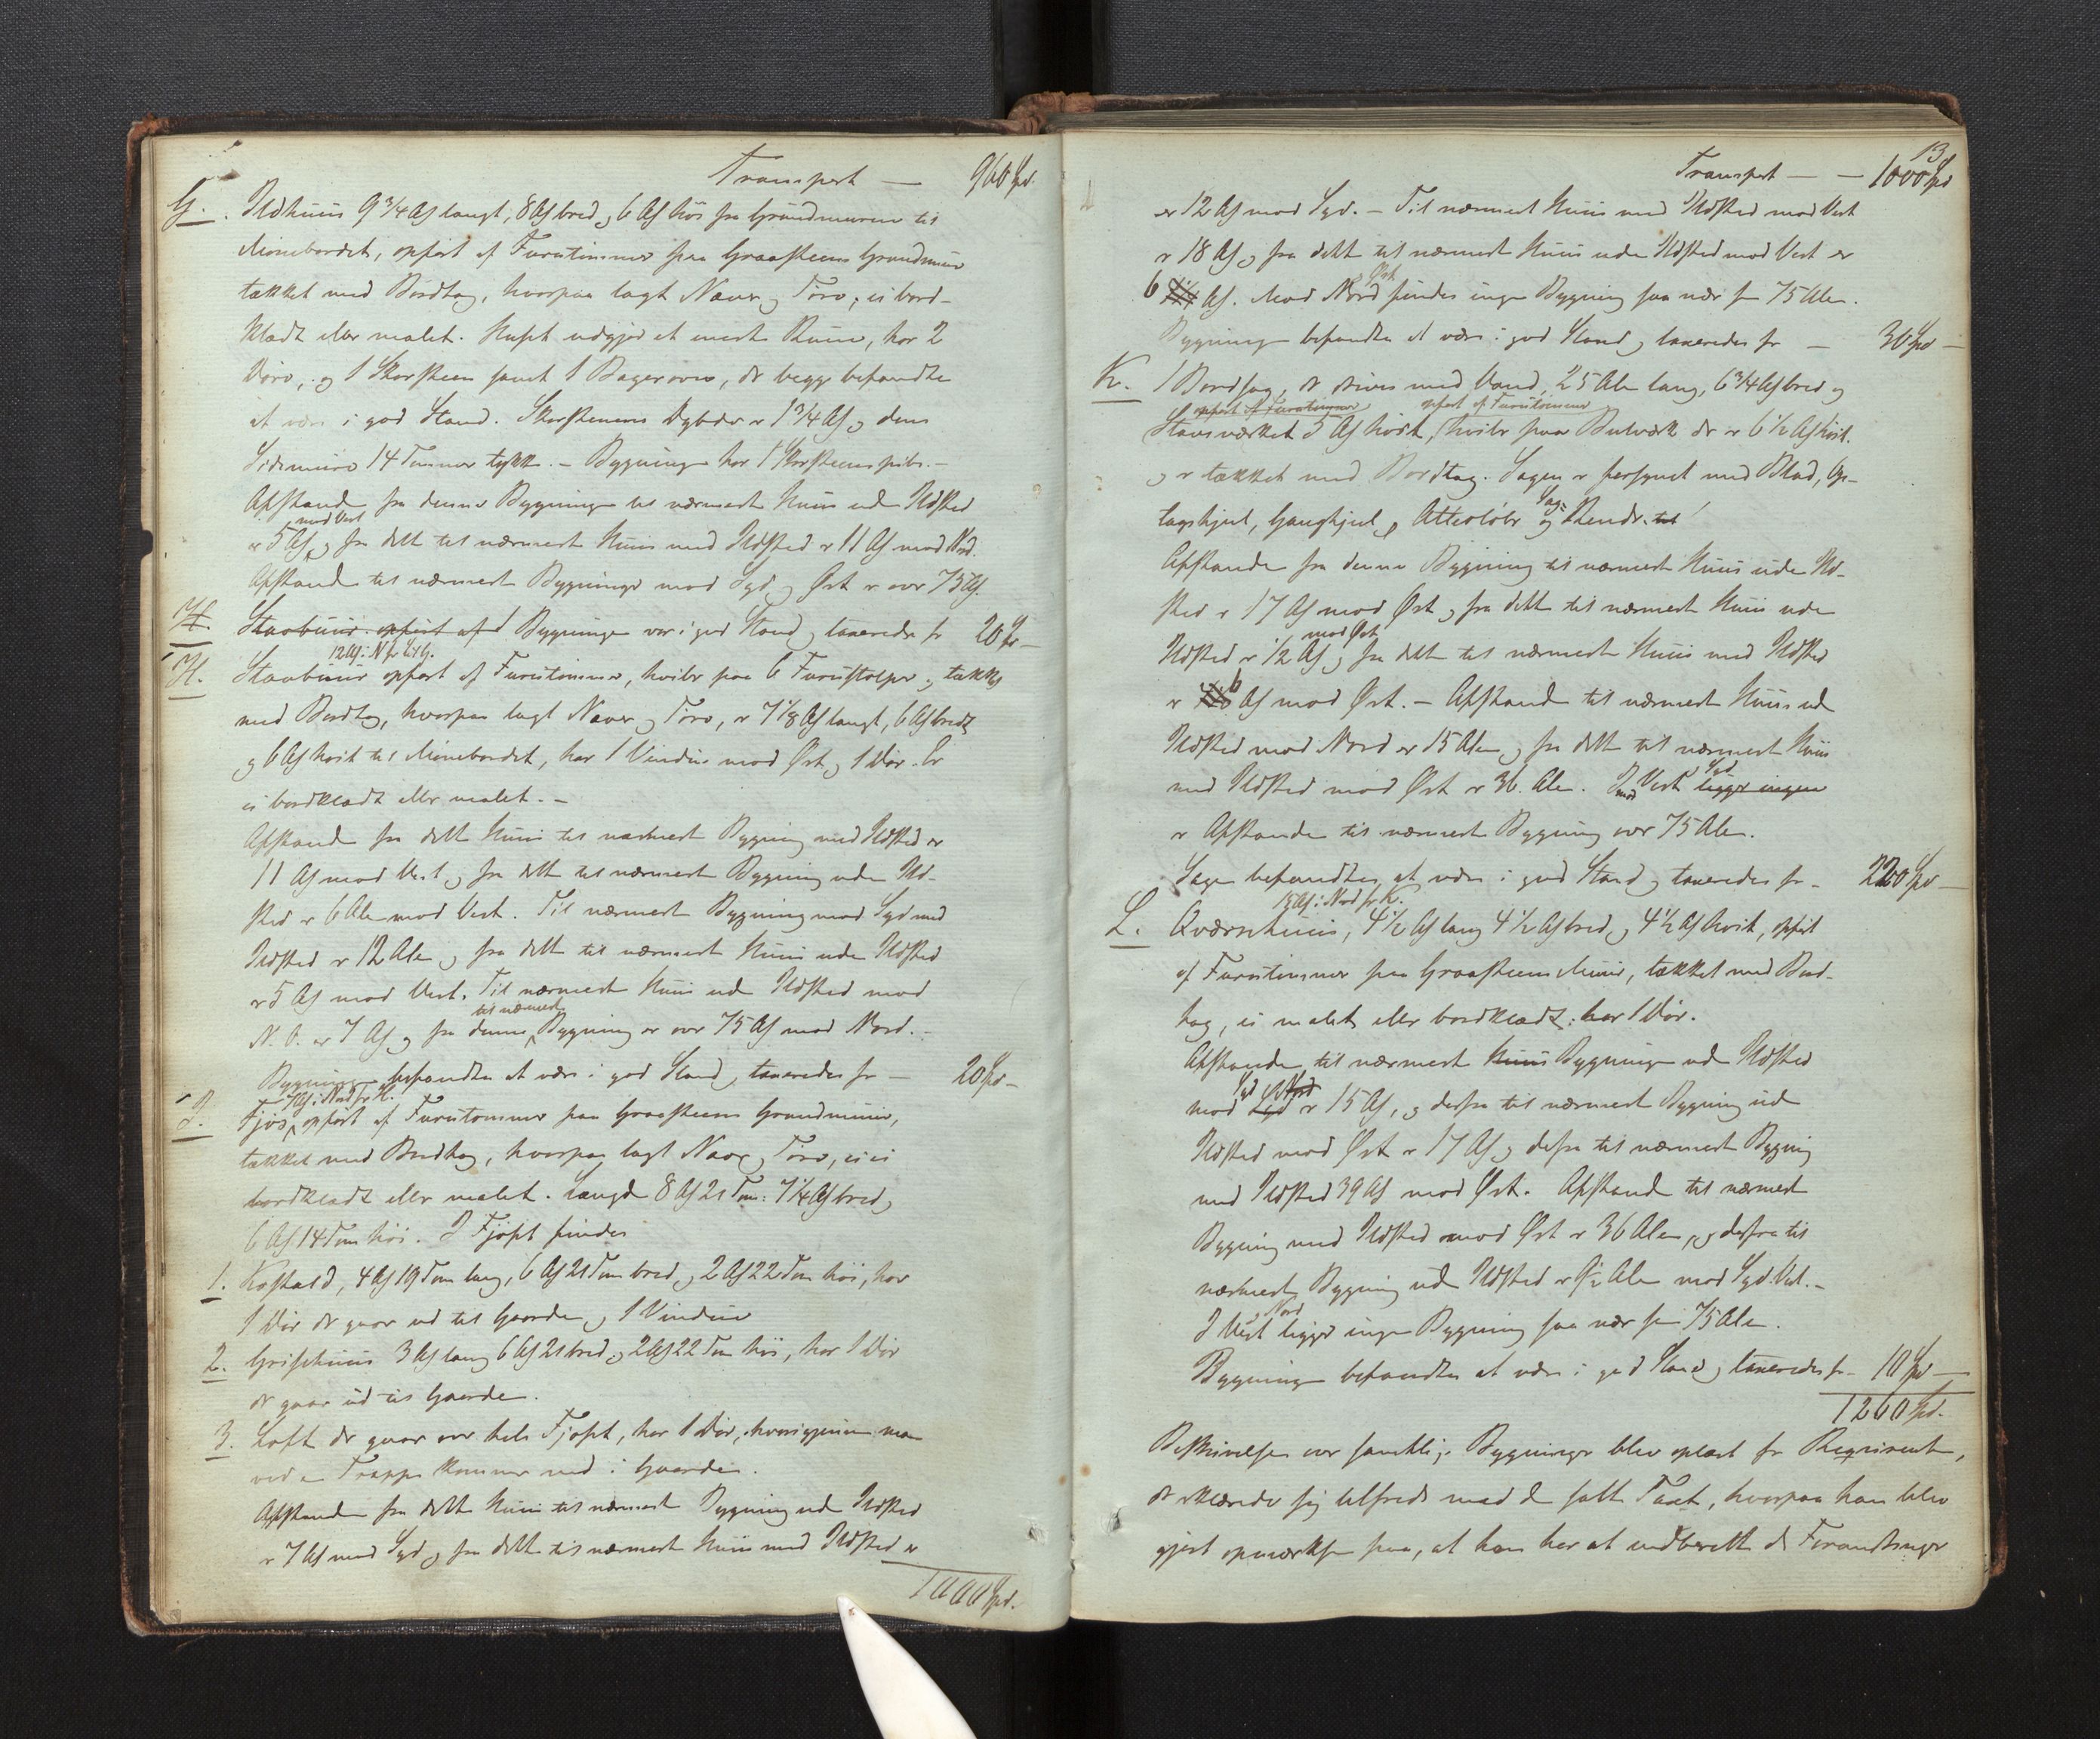 Transport — 960 Spd.
G. Ildhuus 9 3/4 Al langt, 8 Al bred og 6 Al höi fra Grundmuren til
Mönebordet, opfört af Furutimmer paa Graasteens Grundmuur
tækket med Bordtag, hvorpaa lagt Næver og Törv, ei bord-
klædt eller malet. Huset udgjör et eneste Ruum, har 2
Döre, og 1 Skorsteen samt 1 Bagerovn, der begge befandtes
at være i god Stand. Skorstenens Dybde er 1 3/4 Al og dens
Sidemure 14 Tommer tykke. – Bygningen har 1 Skorsteenspibe. –
Afstanden fra denne Bygning til nærmeste Huus uden Ildsted
mod Vest
er 5 Al og fra dette til nærmeste Huus med Ildsted er 11 Al mod Nord.
Afstanden til nærmeste Bygninger mod Syd og Öst er over 75 Al.
H. Stavbuur opfört af Bygningen var i god Stand og taxeredes for 20 Spd –
12 Al i N for Lit G.
H. Stavbuur opfört af Furutimmer, hviler paa 6 Furustolper og tækket
med Bordtag, hvorpaa lagt Næver og Törv, er 7 1/8 Al langt, 6 Al bredt
og 6 Al höit til Mönebordet, har 1 Vindue mod Öst og 1 Dör. Er
ei bordklædt eller malet. –
Afstanden fra dette Huus til nærmeste Bygning med Ildsted er
11 Al mod Vest og fra dette til nærmeste Bygning uden Ild-
sted er 6 Alen mod Vest. Til nærmeste Bygning mod Syd med
Ildsted er 12 Alen og fra dette til nærmeste Huus uden Ildsted
er 5 Al mod Vest. Til nærmeste Huus uden Ildsted mod
til nærmeste
N. O. er 7 Al og fra denne Bygning er over 75 Al mod Nord. –
Bygningen befandtes at være i god Stand og taxeredes for — 20 Spd –
7 Al i Nord for H.
J. Fjös, opfört af Furutømmer paa Graasteens Grundmuur,
tækket med Bordtag, hvorpaa lagt Næver og Törv, er ei
bordklædt eller malet. Længde 8 Al 21 Tom: 7 1/4 Al bred og
6 Al 14 Tom höi. I Fjöset findes
1. Kostald, 4 Al 19 Tom lang, 6 Al 21 Tom bred og 2 Al 22 Tom höi, har
1 Dör der gaar ud til Gaarden og 1 Vindue
2. Grisehuus 3 Al lang 6 Al 21 bred og 2 Al 22 Tom höi, har 1 Dör
der gaar ud til Gaarden.
3. Loft der gaar over hele Fjöset, har 1 Dör, hvorigjennem man
ved en Trappe kommer ned i Gaarden.
Afstanden fra dette Huus til nærmeste Bygning uden Ildsted
er 7 Al mod Syd og fra dette til nærmeste Huus med Ildsted er
1000 Spd.
13
Transport — — 1000 Spd
er 12 Al mod Syd. – Til nærmeste Huus med Ildsted mod Vest
er 18 Al og fra dette til nærmeste Huus uden Ildsted mod Vest er
og Öst
6 Al. Mod Nord findes ingen Bygning saa nær som 75 Alen.
Bygningen befandtes at være i god Stand og taxeredes for — 30 Spd –
K. 1 Bordsag, der drives med Vand, 25 Alen lang, 6 3/4 Al bred og
opfört af Furutimmer opfört af Furutimmer
Stavsværket 5 Al höit, hviler paa Bulværk der er 6 1/2 Al höit.
og er tækket med Bordtag. Sagen er forsynet med Blad, Op-
Sag-
tagshjul, Ganghjul, Atterlöbr og Rende til
Afstanden fra denne Bygning til nærmeste Huus uden Ild-
sted er 17 Al mod Öst og fra dette til nærmeste Huus uden
mod Öst
Ildsted er 1/2 Al og fra dette til nærmeste Huus med Ildsted
er 6 Al mod Öst. – Afstanden til nærmeste Huus uden
Ildsted mod Nord er 15 Alen og fra dette til nærmeste Huus
Syd
med Ildsted mod Öst er 36 Alen. I mod Vest ligger ingen
er Afstanden til nærmeste Bygning over 75 Alen.
Sagen befandtes at være i god Stand og taxeredes for – 220 Spd –
15 Al i Nord for K.
L. Qværnhuus, 4 1/2 Al lang 4 1/2 Al bred, og 4 1/2 Al höit, opfört
af Furutimmer paa Graasteens Muur, tækket med Bord-
tag, ei malet eller bordklædt: har 1 Dör.
Afstanden til nærmeste Huus Bygning uden Ildsted
mod Syd er 15 Al, og derfra til nærmeste Bygning uden
Ildsted mod Öst er 17 Al og derfra til nærmeste Bygning
med Ildsted 39 Al mod Öst. Afstanden til nærmeste
Bygning med Ildsted mod Öst er 36 Alen, og derfra til
nærmeste Bygning uden Ildsted er 9 1/2 Alen mod Syd Vest. –
og Nord
I Vest ligger ingen Bygning saa nær som 75 Alen.
Bygningen befandtes at være i god Stand og taxeredes for – 10 Spd –
1260 Spd.
Beskrivelsen over samtlige Bygninger blev oplæst for Reqvirenten,
der erklærede sig tilfreds med den satte Taxt, hvorpaa han blev
gjort opmærksom paa, at han har at indberette de Forandringer